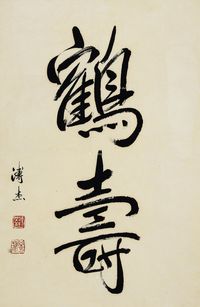 鶴壽
溥杰